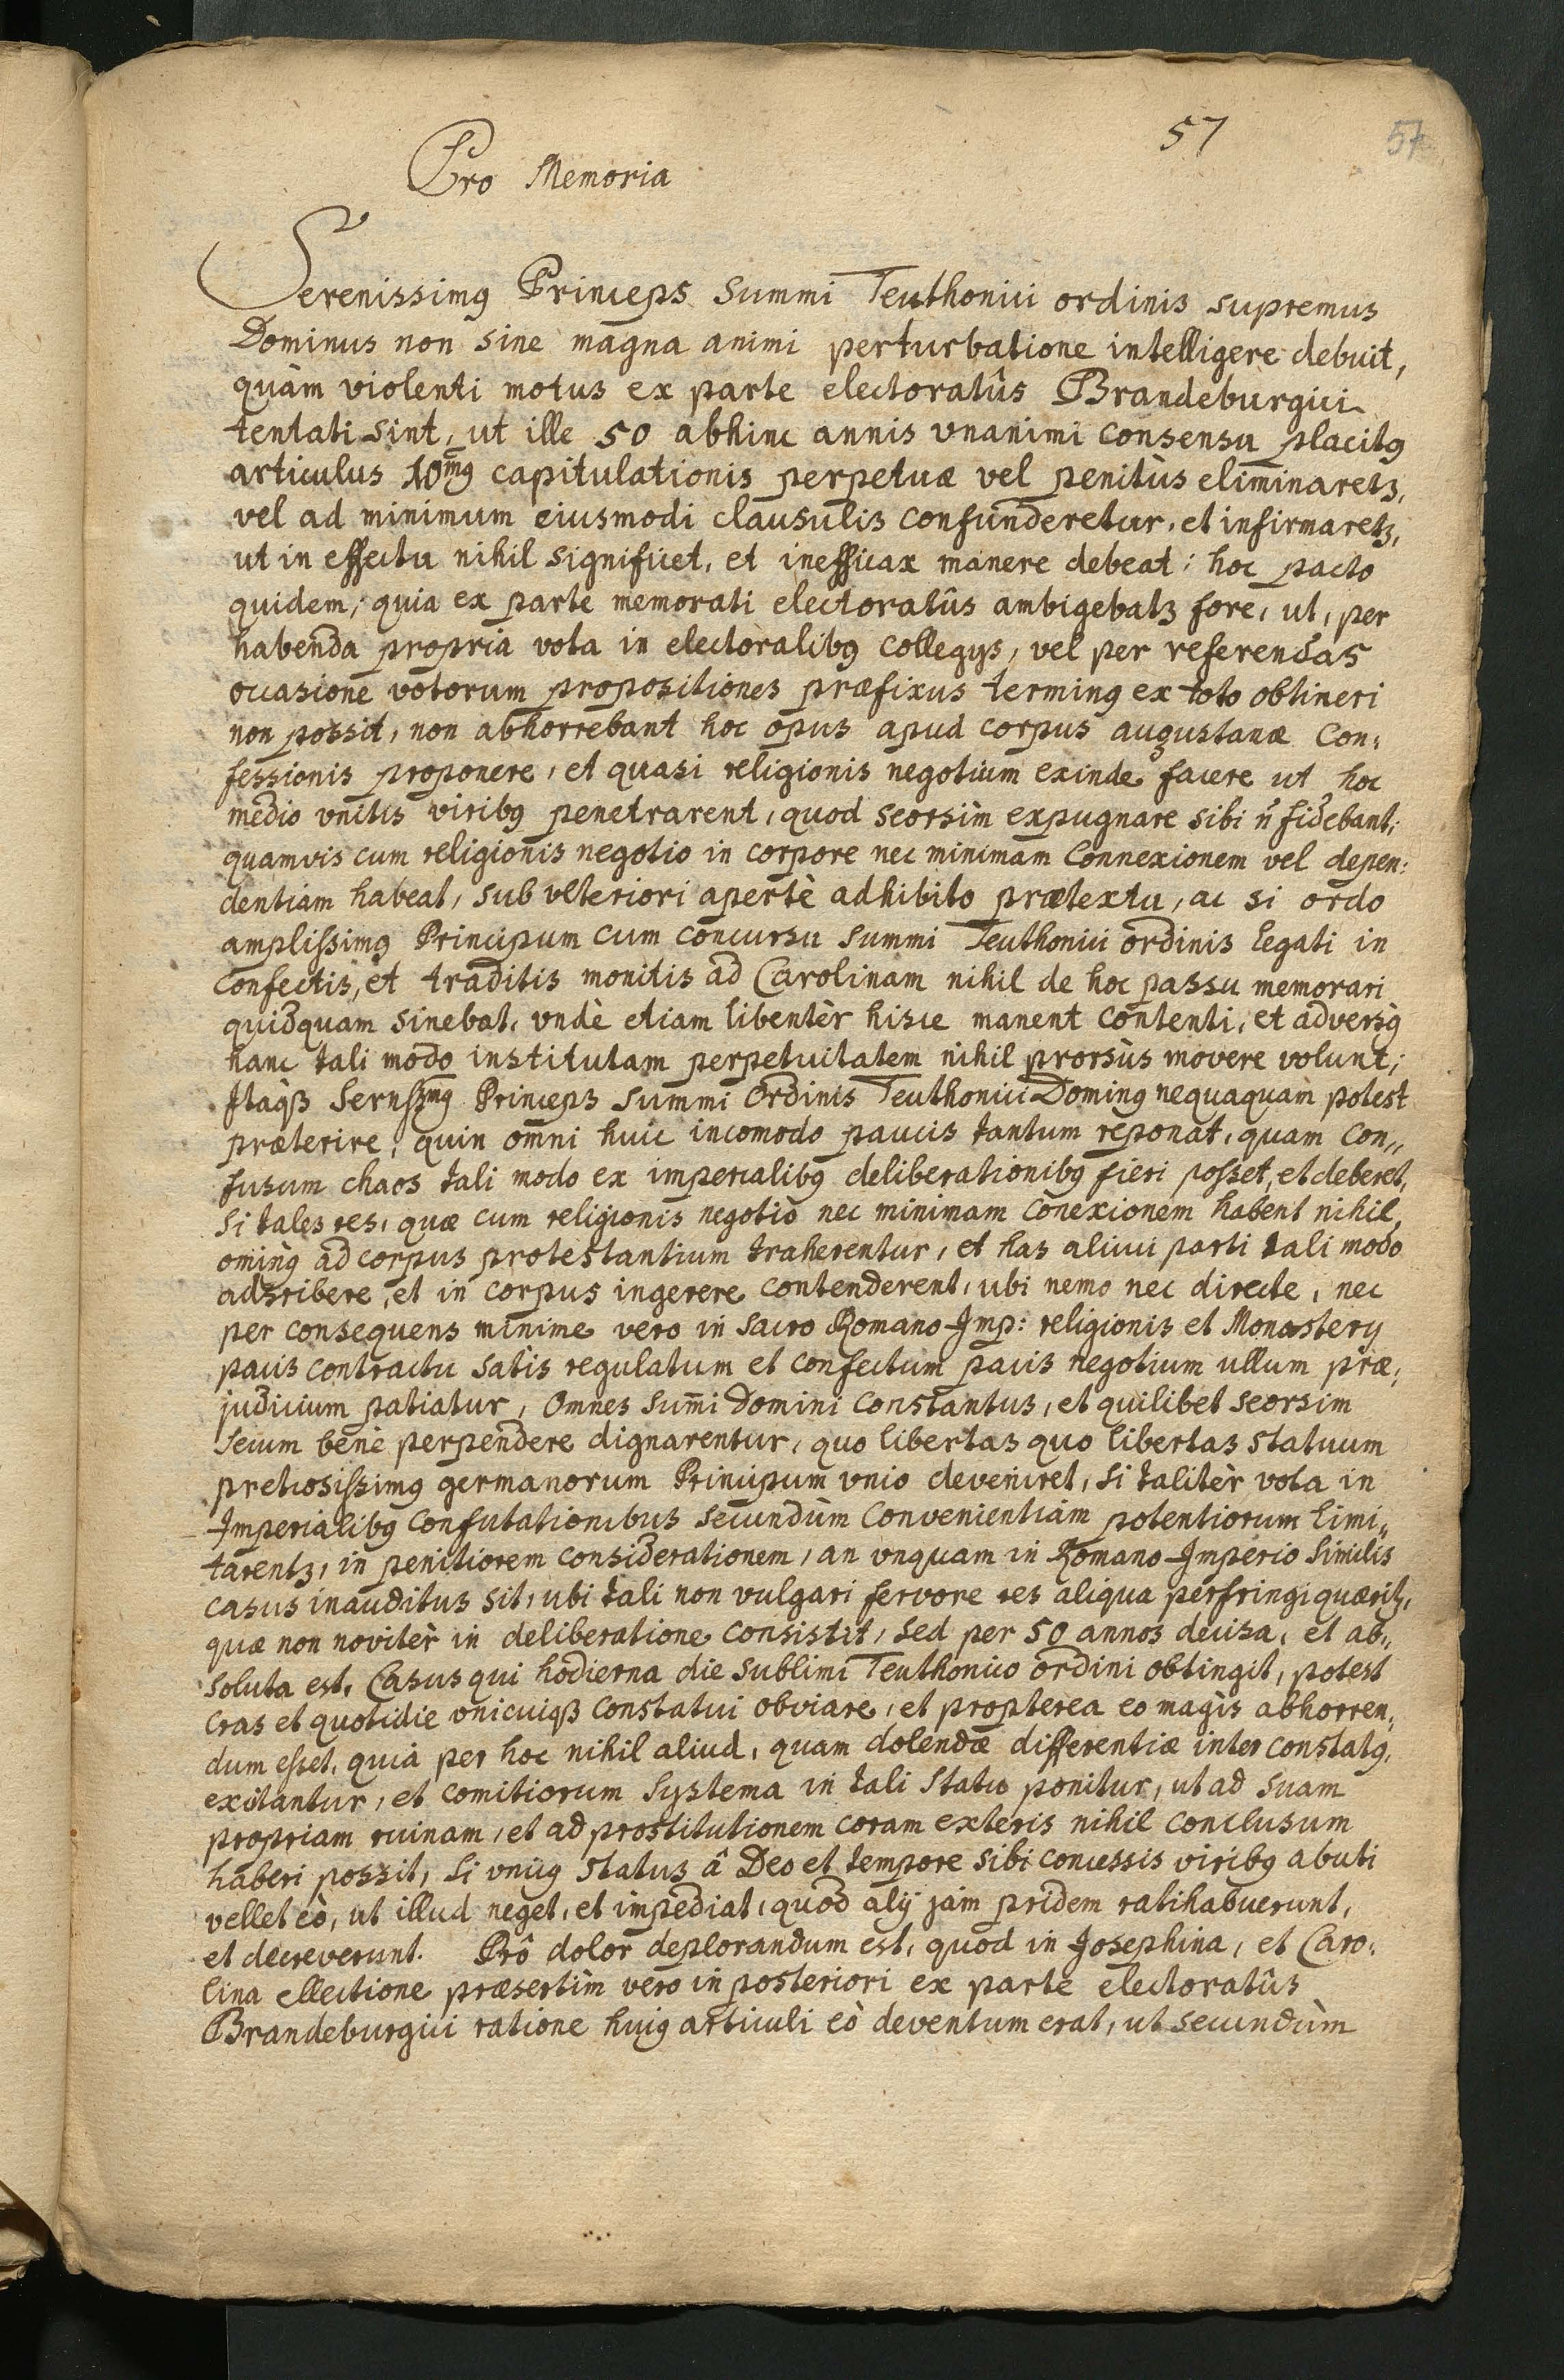 57
57
Pro Memoria
Serenissimꝰ Princeps Summi Teuthonici ordinis supremus
Dominus non sine magna animi perturbatione intelligere debuit,
quàm violenti motus ex parte electoratûs Brandeburgici
tentati sint, ut ille 50 abhinc annis vnanimi consensu placitꝰ
articulus 10mꝰ capitulationis perpetuæ vel penitùs eliminaretꝫ,
vel ad minimum eiusmodi clausulis confunderetur, et infirmaretꝫ,
ut in effectu nihil significet, et inefficax manere debeat; hoc pacto
quidem, quia ex parte memorati electoratûs ambigebatꝫ fore, ut, per
habenda propria vota in electoralibꝰ collegijs, vel per referendas
occasione votorum propositiones præfixus terminꝰ ex toto obtineri
non possit, non abhorrebant hoc opus apud corpus augustanæ Con:
fessionis proponere, et quasi religionis negotium exinde facere ut hoc
medio vnitis viribꝰ penetrarent, quod seorsìm expugnare sibi n̄ fidebant;
quamvis cum religionis negotio in corpore nec minimam Connexionem vel depen:
dentiam habeat, sub vlteriori apertè adhibito prætextu, ac si ordo
amplissimꝰ Principum cum concursu Summi Teuthonici ordinis legati in
confectis, et traditis monitis ad Carolinam nihil de hoc passu memorari
quidquam sinebat, vndè etiam libentèr hisce manent contenti, et adversꝰ
hanc tali modo institutam perpetuitatem nihil prorsùs movere volunt;
Itaqꝫ Sernssmꝰ Princeps Summi Ordinis Teuthonici Dominꝰ nequaquam potest
præterire, quin omni huic incomodo paucis tantum reponat, quam con„
fusum chaos tali modo ex imperialibꝰ deliberationibꝰ fieri posset, et deberet,
Si tales res, quæ cum religionis negotio nec minimam conexionem habent nihil,
ominꝰ ad corpus protestantium traherentur, et has alicui parti tali modo
adscribere, et in corpus ingerere contenderent, ubi nemo nec directe, nec
per consequens minime vero in Sacro Romano Imp: religionis et Monasterij
pacis contractu satis regulatum et confectum pacis negotium ullum præ,
judicium patiatur, Omnes sum̄i Domini Constantus, et quilibet seorsim
Secum benè perpendere dignarentur, quo libertas quo libertas statuum
pretiosissimꝰ germanorum Principum vnio deveniret, si talitèr vota in
Imperialibꝰ Confutationibus Secundùm Convenientiam potentiorum limi„
tarentꝫ, in penitiorem considerationem, an vnquam in Romano Imperio Similis
casus inauditus sit, ubi tali non vulgari fervore res aliqua perfringi quæritꝫ,
quæ non novitèr in deliberatione consistit, sed per 50 annos decisa, et ab„
soluta est, Casus qui hodierna die Sublimi Teuthonico ordini obtingit, potest
cras et quotidie vnicuiqꝫ constatui obviare, et propterea eo magìs abhorren,
dum esset, quia per hoc nihil aliud, quam dolendæ differentiæ inter constatꝰ,
excitantur, et comitiorum Systema in tali Statu ponitur, ut ad suam
propriam ruinam, et ad prostitutionem coram exteris nihil conclusum
haberi possit, si vniꝰ status â Deo et tempore sibi concessis viribꝰ abuti
vellet eò, ut illud neget, et impediat, quod alij jam pridem ratihabuerunt,
et decreverunt. Prô dolor deplorandum est, quod in Josephina, et Caro:
lina ellectione præsertìm vero in posteriori ex parte electoratûs
Brandeburgici ratione huiꝰ articuli eò deventum erat, ut secundùm